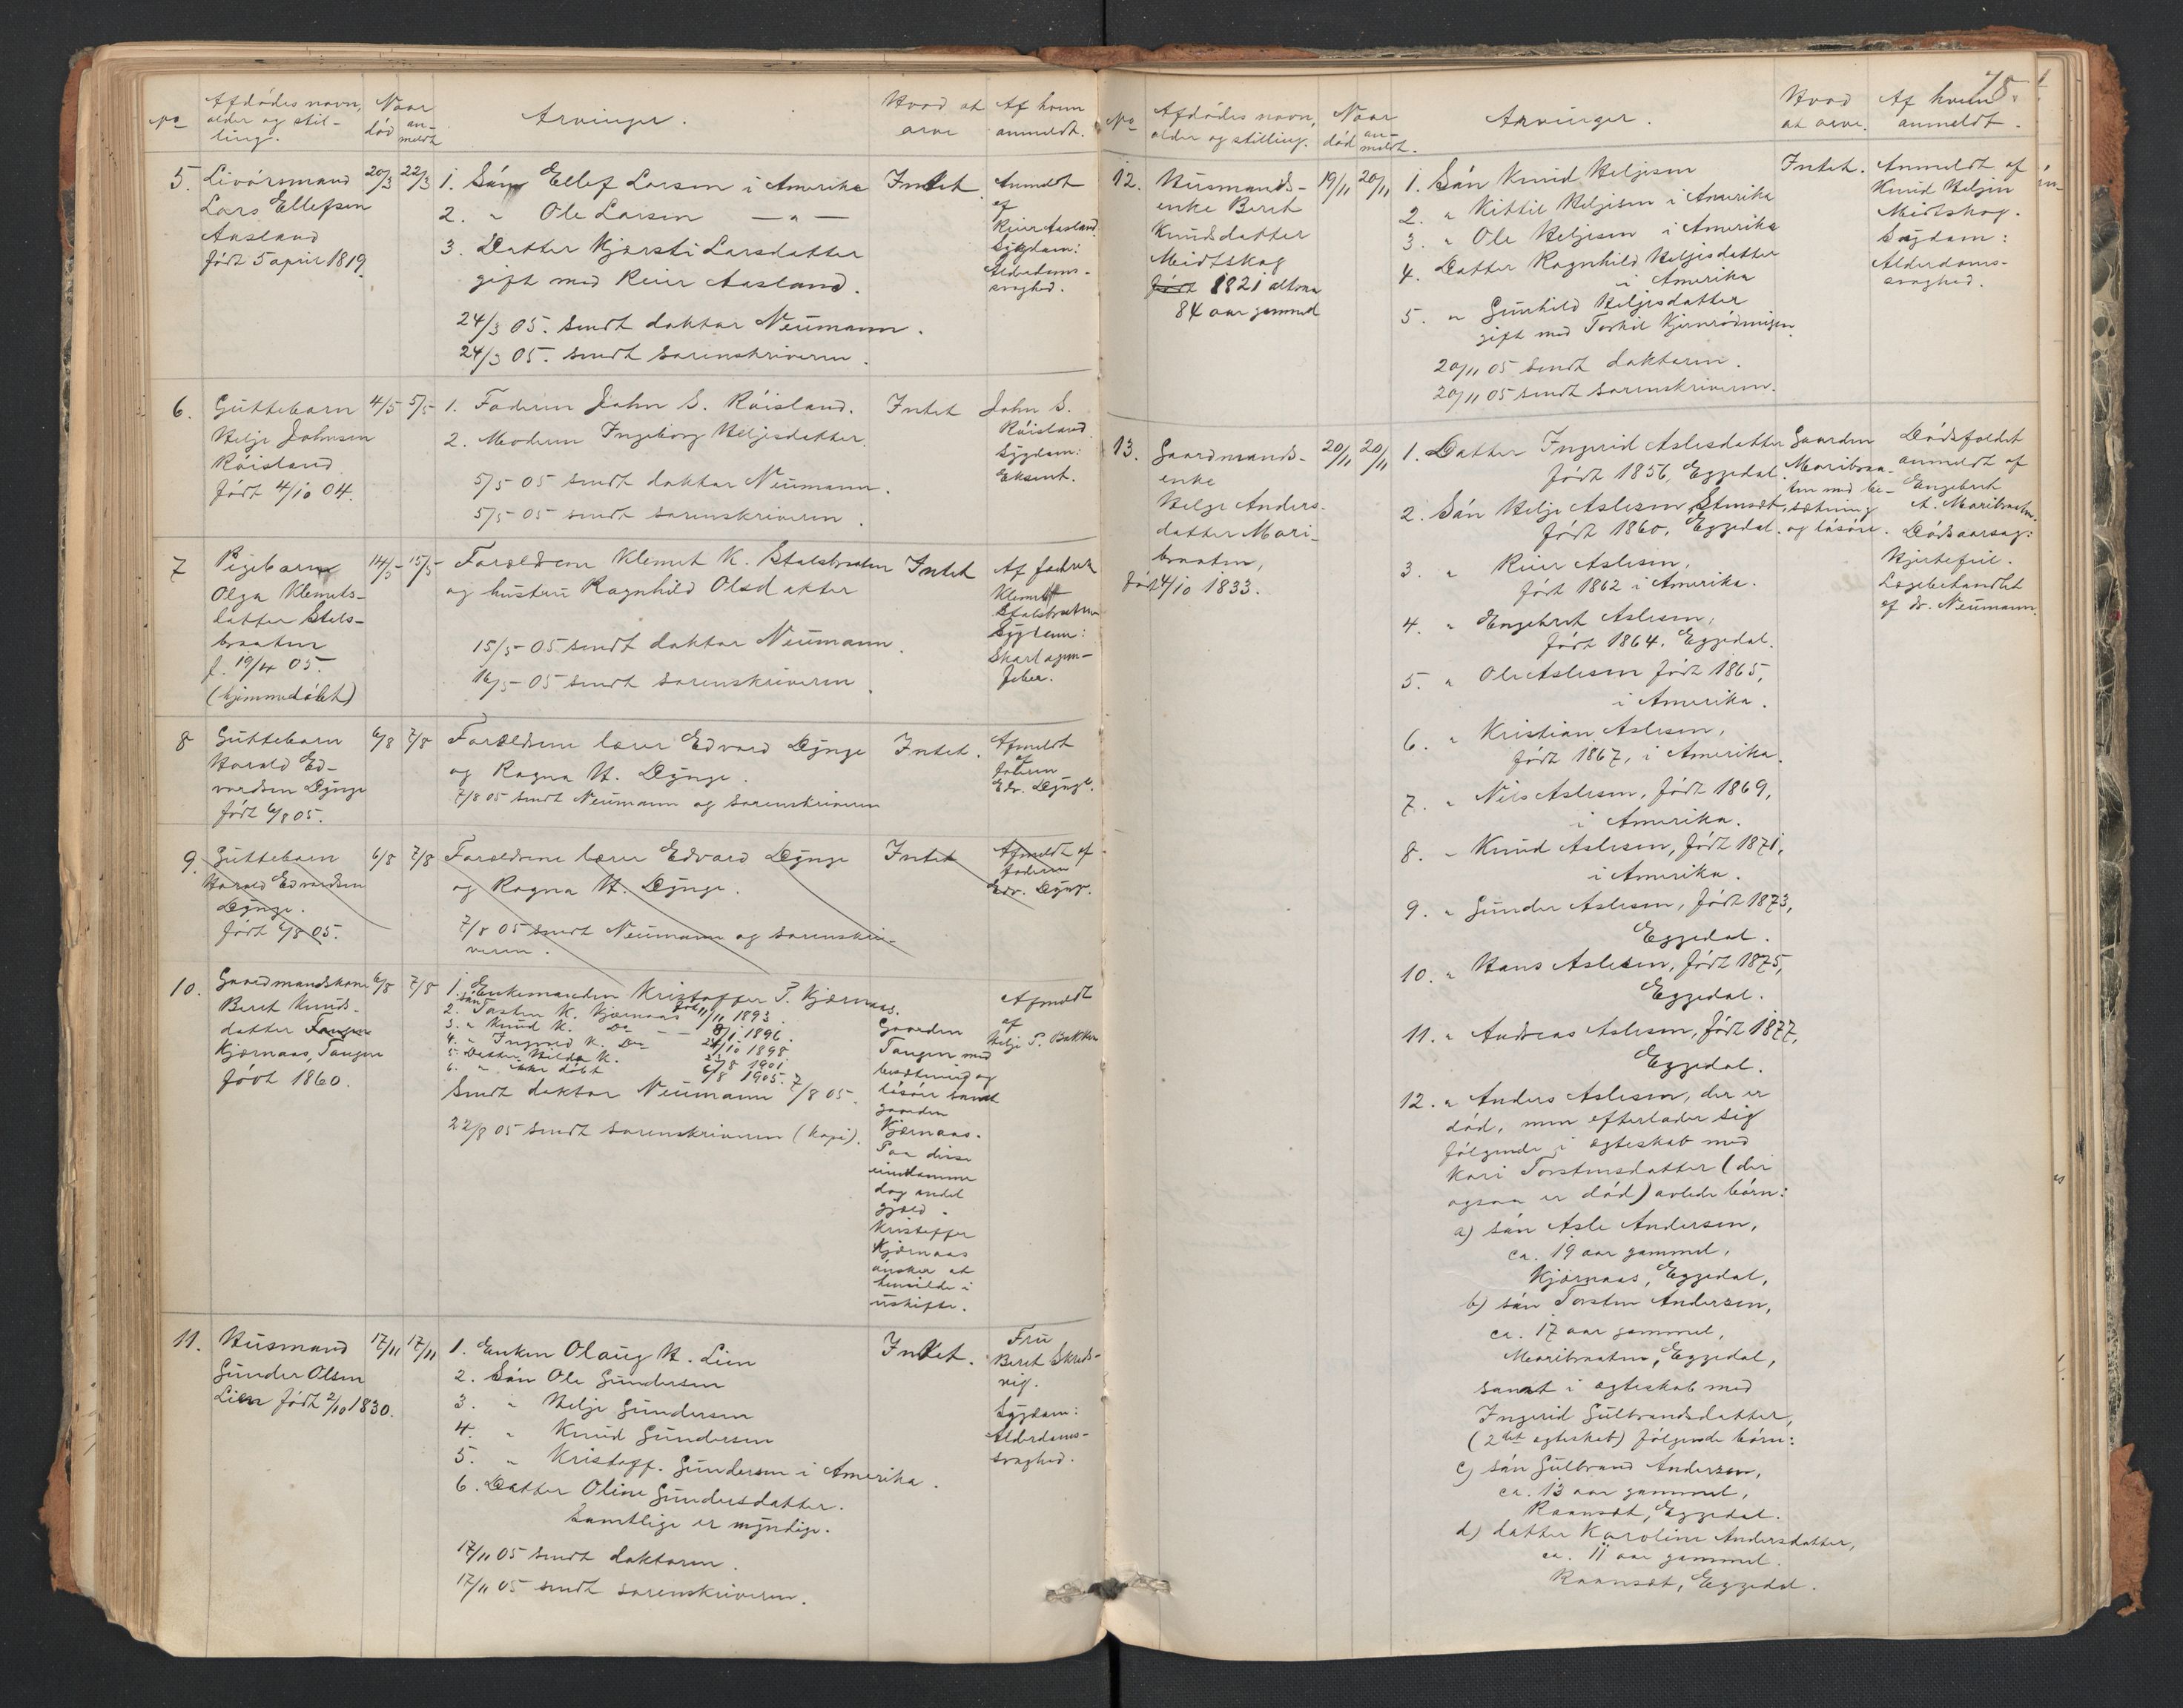 No
Afdödes navn,
alder og stil-
ling.
Naar
död
an-
meldt
Arvinger.
Hvad at
arve
Af hvem
anmeldt.
5.
Livörsmand
Lars Ellefsen
Aasland
födt 5 april 1819.
20/3
22/3
1. Sön Ellef Larsen i Amerika
2. " Ole Larsen — " —
3. Datter Kjersti Larsdatter
gift med Reier Aasland.
24/3 05. Sendt doktor Neumann.
24/3 05. sendt sorenskriveren.
Intet.
Anmeldt
af
Reier Aasland.
Sygdom:
Alderdoms-
svaghed.
6.
Guttebarn
Helge Johnsen
Röisland
födt 4/10 04.
4/5
5/5
1. Faderen John S. Röisland.
2. Moderen Ingeborg Helgesdatter.
5/5 05 sendt doktor Neumann.
5/5 05 sendt sorenskriveren.
Intet
John S.
Röisland
Sygdom:
Eksemt.
7
Pigebarn
Olga Klemets-
datter Stals-
braaten
f. 19/4 05.
(hjemmedöbt)
14/5
15/5
Forældrene Klemet K. Stalsbraaten
og hustru Ragnhild Olsdatter
15/5 05 sendt doktor Neumann.
16/5 05 sendt sorenskriveren.
Intet
Af fader
Klemet
Stalsbraaten
Sygdom:
Skarlagen-
feber.
8
Guttebarn
Harald Ed-
vardsen Dynge
födt 6/8 05.
6/8
7/8
Forældrene lærer Edvard Dynge
og Ragna H. Dynge.
7/8 05 sendt Neumann og sorenskriveren
Intet.
Anmeldt
af
faderen
Edv. Dynge.
9.
Guttebarn
Harald Edvardsen
Dynge.
födt 6/8 05.
6/8
7/8
Forældrene lærer Edvard Dynge
og Ragna H. Dynge.
7/8 05 sendt Neumann og sorenskri-
veren.
Intet
Anmeldt af
faderen
Edv. Dynge.
10.
Gaardmandskone
Beret Knuds-
datter Tangen
Kjærnaas, Tangen
födt 1860.
6/8
7/8
1. Enkemanden Kristoffer T. Kjærnaas.
2. sön Torsten K. Kjærnaas födt 11/11 1893.
3. " Knud K. Do — — 8/1 1896.
4. " Ingvald K. Do 24/10 1898.
5. Datter Hilda K. 23/8 1901.
6. " ikke döbt 6/8 1905.
Sendt doktor Neumann 7/8 05.
22/8 05 sendt sorenskriveren (kopi).
Gaarden
Tangen med
besætning og
lösöre samt
gaarden
Kjærnaas.
Paa disse
eiendomme
dog andel
gjæld.
Kristoffer
Kjærnaas
önsker at
hensidde i
uskifte.
Anmeldt
af
Helge P. Bakken
11.
Husmand
Gunder Olsen
Lien födt 2/10 1830.
17/11
17/11
1. Enken Olaug H. Lien
2. Sön Ole Gundersen
3. " Helge Gundersen
4. " Knud Gundersen
5. " Kristoff. Gundersen i Amerika.
6. Datter Oline Gundersdatter.
Samtlige er myndige.
17/11 05 sendt doktoren.
17/11 05 sendt sorenskriveren.
Intet.
Fru
Beret Skreds-
vig.
Sygdom:
Alderdoms-
svaghed.
75.
No
Afdödes navn,
alder og stilling.
Naar
död
an-
meldt.
Arvinger.
Hvad
at arve.
Af hvem
anmeldt.
12.
Husmands-
enke Beret
Knudsdatter
Midtskog
födt 1821 altsaa
84 aar gammel
19/11
20/11
1. Sön Knud Helgesen
2. " Kittil Helgesen i Amerika
3. " Ole Helgesen i Amerika
4. Datter Ragnhild Helgesdatter
i Amerika
5. " Gunhild Helgesdatter
gift med Torkil Kjernrödningen.
20/11 05 sendt doktoren.
20/11 05 sendt sorenskriveren.
Intet.
Anmeldt af
Knud Helgesen
Midtskog.
Sygdom:
Alderdoms-
svaghed.
13.
Gaardmands-
enke
Helge Anders-
datter Mari-
braaten,
född 4/10 1833.
20/11
20/11
1. Datter Ingerid Aslesdatter
födt 1856, Eggedal.
2. Sön Helge Aslesen,
födt 1860, Eggedal.
3. " Reier Aslesen,
födt 1862 i Amerika.
4. " Engebret Aslesen,
födt 1864. Eggedal.
5. " Ole Aslesen födt 1865,
i Amerika.
6. " Kristian Aslesen,
födt 1867, i Amerika.
7. " Nils Aslesen, födt 1869,
i Amerika.
8. " Knud Aslesen, födt 1871,
i Amerika.
9. " Gunder Aslesen, födt 1873,
Eggedal.
10. " Hans Aslesen, födt 1875,
Eggedal.
11. " Andreas Aslesen, födt 1877,
Eggedal.
12. " Anders Aslesen, der er
död, men efterlader sig
fölgende i ægteskab med
Kari Torstensdatter (der
ogsaa er död) avlede börn:
a) sön Asle Andersen,
ca. 19 aar gammel,
Kjærnaas, Eggedal,
b) sön Torsten Andersen,
ca. 17 aar gammel,
Maribraaten, Eggedal,
samt i ægteskab med
Ingerid Gulbrandsdatter,
(2det ægteskab) fölgende börn:
c) sön Gulbrand Andersen,
ca. 13 aar gammel,
Raanset, Eggedal.
d) datter Karoline Andersdatter,
ca. 11 aar gammel.
Raanset, Eggedal.
Gaarden
Maribraa-
ten med be-
sætning
og lösöre.
Dödsfaldet
anmeldt af
Engebret
A. Maribraaten.
Dödsaarsag:
Hjertefeil.
Lægebehandlet
af dr. Neumann.